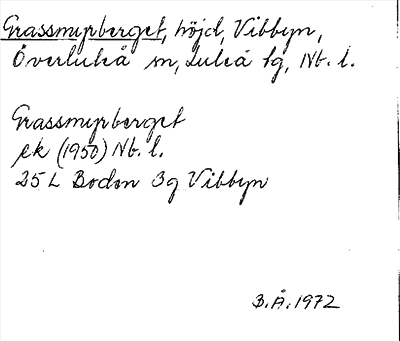 Grassmyrberget, höjd, Vibbyn,
Överluleå sn, Luleå tg, Nb. l.
Grassmyrberget
ek (1950) Nb. l.
25 L Boden 3g Vibbyn
B.Å. 1972